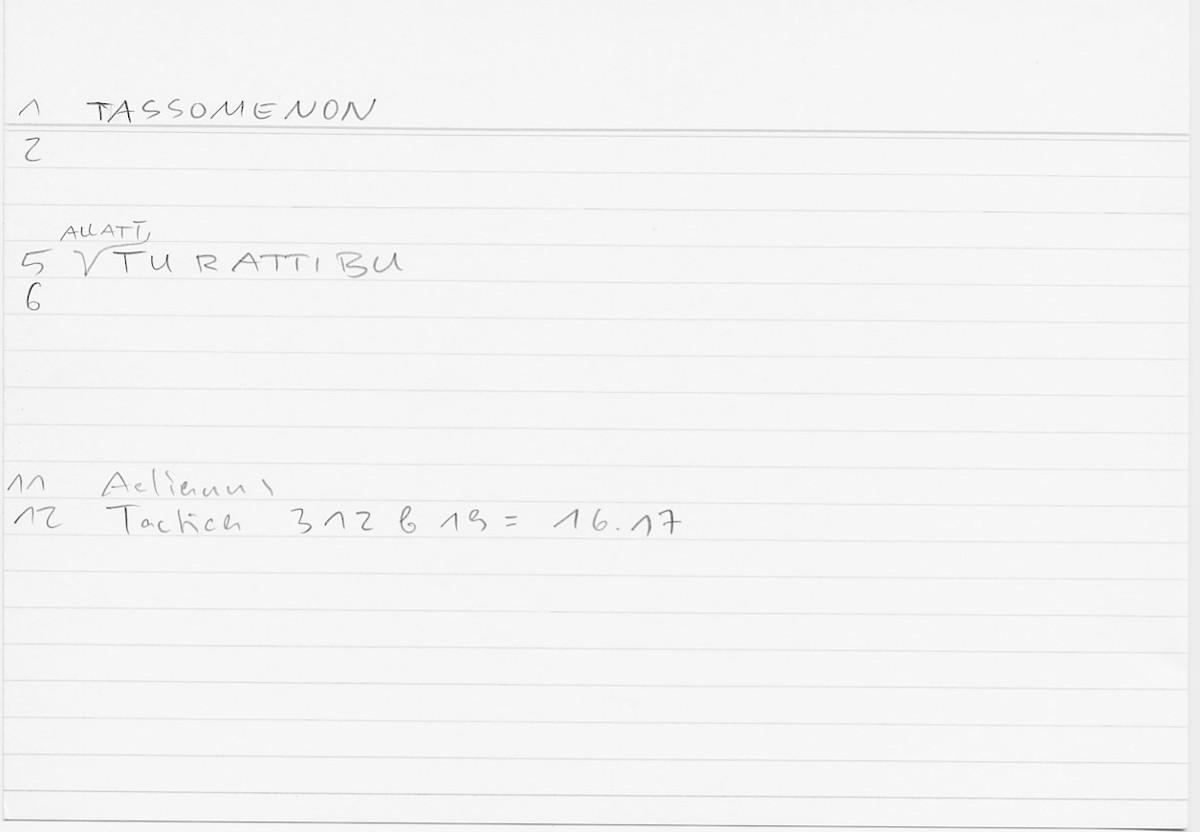 1 TASSOMENON
2
ALLATĪ
5 √TU RATTIBU
6
11 Aelianus
12 Tactica 312 b 19 = 16.17